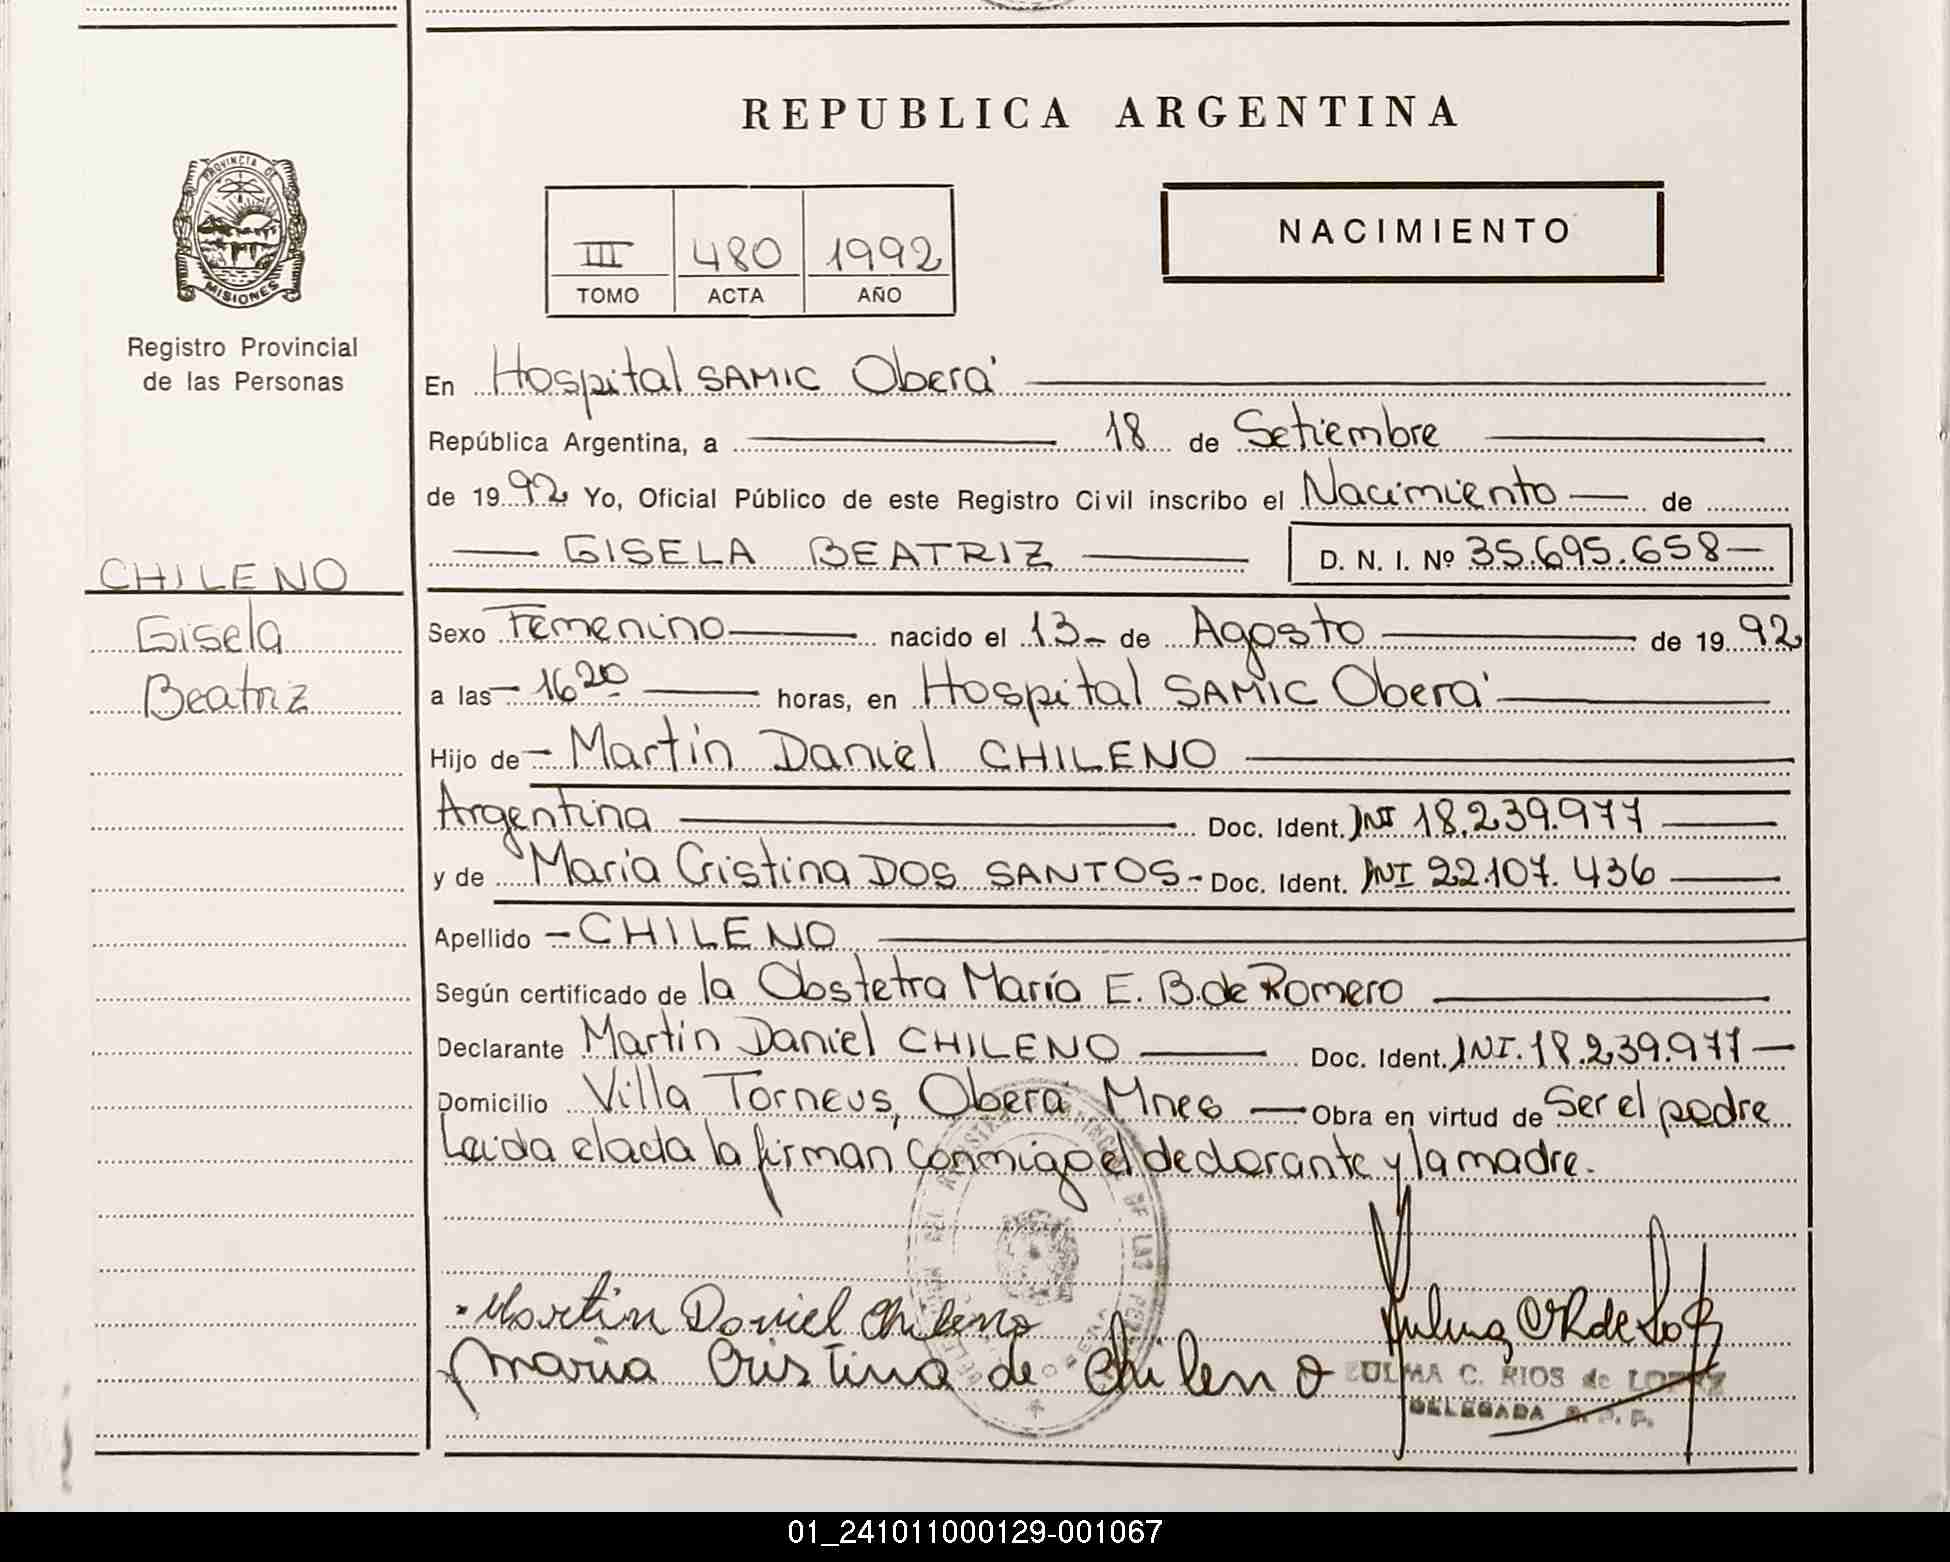 REPUBLICA ARGENTINA
PROVINCIA DE
MISIONES
Registro Provincial
de las Personas
III 480 1992
TOMO ACTA AÑO
NACIMIENTO
En Hospital SAMIC Oberá
República Argentina, a 18 de Setiembre
de 1992 Yo, Oficial Público de este Registro Civil inscribo el Nacimiento de
GISELA BEATRIZ D. N. I. Nº 35.695.658
CHILENO
Gisela
Beatriz
Sexo Femenino nacido el 13 de Agosto de 1992
a las 16 20 horas, en Hospital SAMIC Oberá
Hijo de Martín Daniel CHILENO
Argentina Doc. Ident. DNI 18.239.977
y de María Cristina DOS SANTOS - Doc. Ident. DNI 22.107.436
Apellido - CHILENO
Según certificado de la Obstetra María E. B. de Romero
Declarante Martín Daniel CHILENO Doc. Ident. DNI. 18.239.977
Domicilio Villa Torneus, Oberá Mnes Obra en virtud de Ser el padre
Leída el acta la firman conmigo el declarante y la madre.
Martin Daniel Chileno
Maria Cristina de Chileno
ZULMA C. RIOS de LOPEZ
DELEGADA R. P. P.
01_241011000129-001067